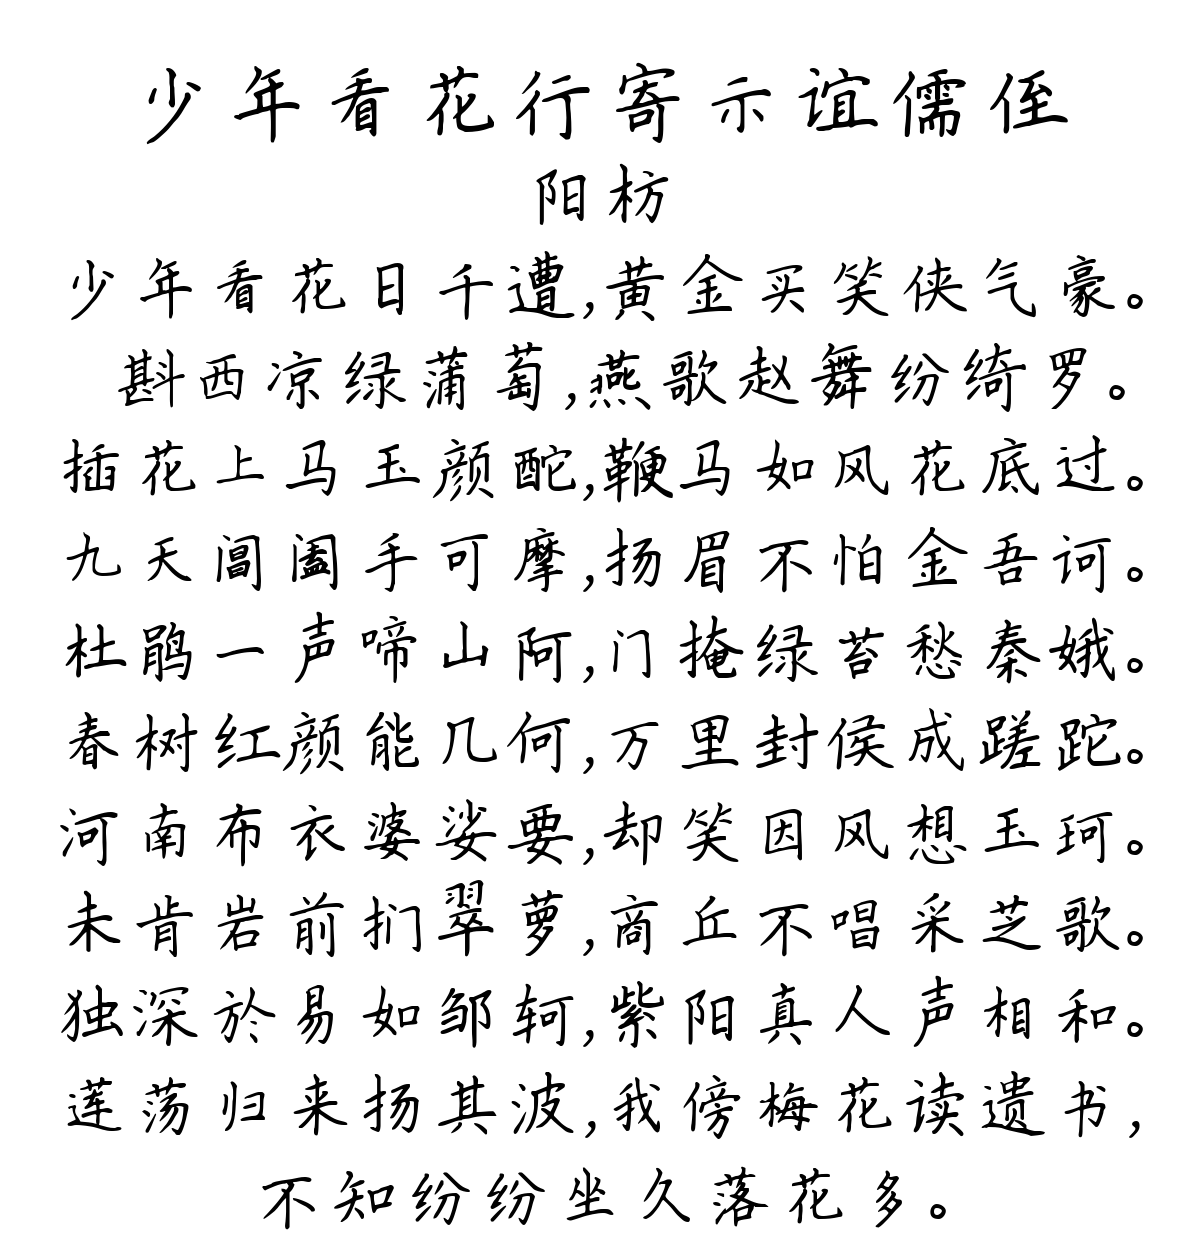 少年看花行寄示谊儒侄
阳枋
少年看花日千遭,黄金买笑侠气豪。
斟西凉绿蒲萄,燕歌赵舞纷绮罗。
插花上马玉颜酡,鞭马如风花底过。
九天阊阖手可摩,扬眉不怕金吾诃。
杜鹃一声啼山阿,门掩绿苔愁秦娥。
春树红颜能几何,万里封侯成蹉跎。
河南布衣婆娑要,却笑因风想玉珂。
未肯岩前扪翠萝,商丘不唱采芝歌。
独深於易如邹轲,紫阳真人声相和。
莲荡归来扬其波,我傍梅花读遗书,
不知纷纷坐久落花多。